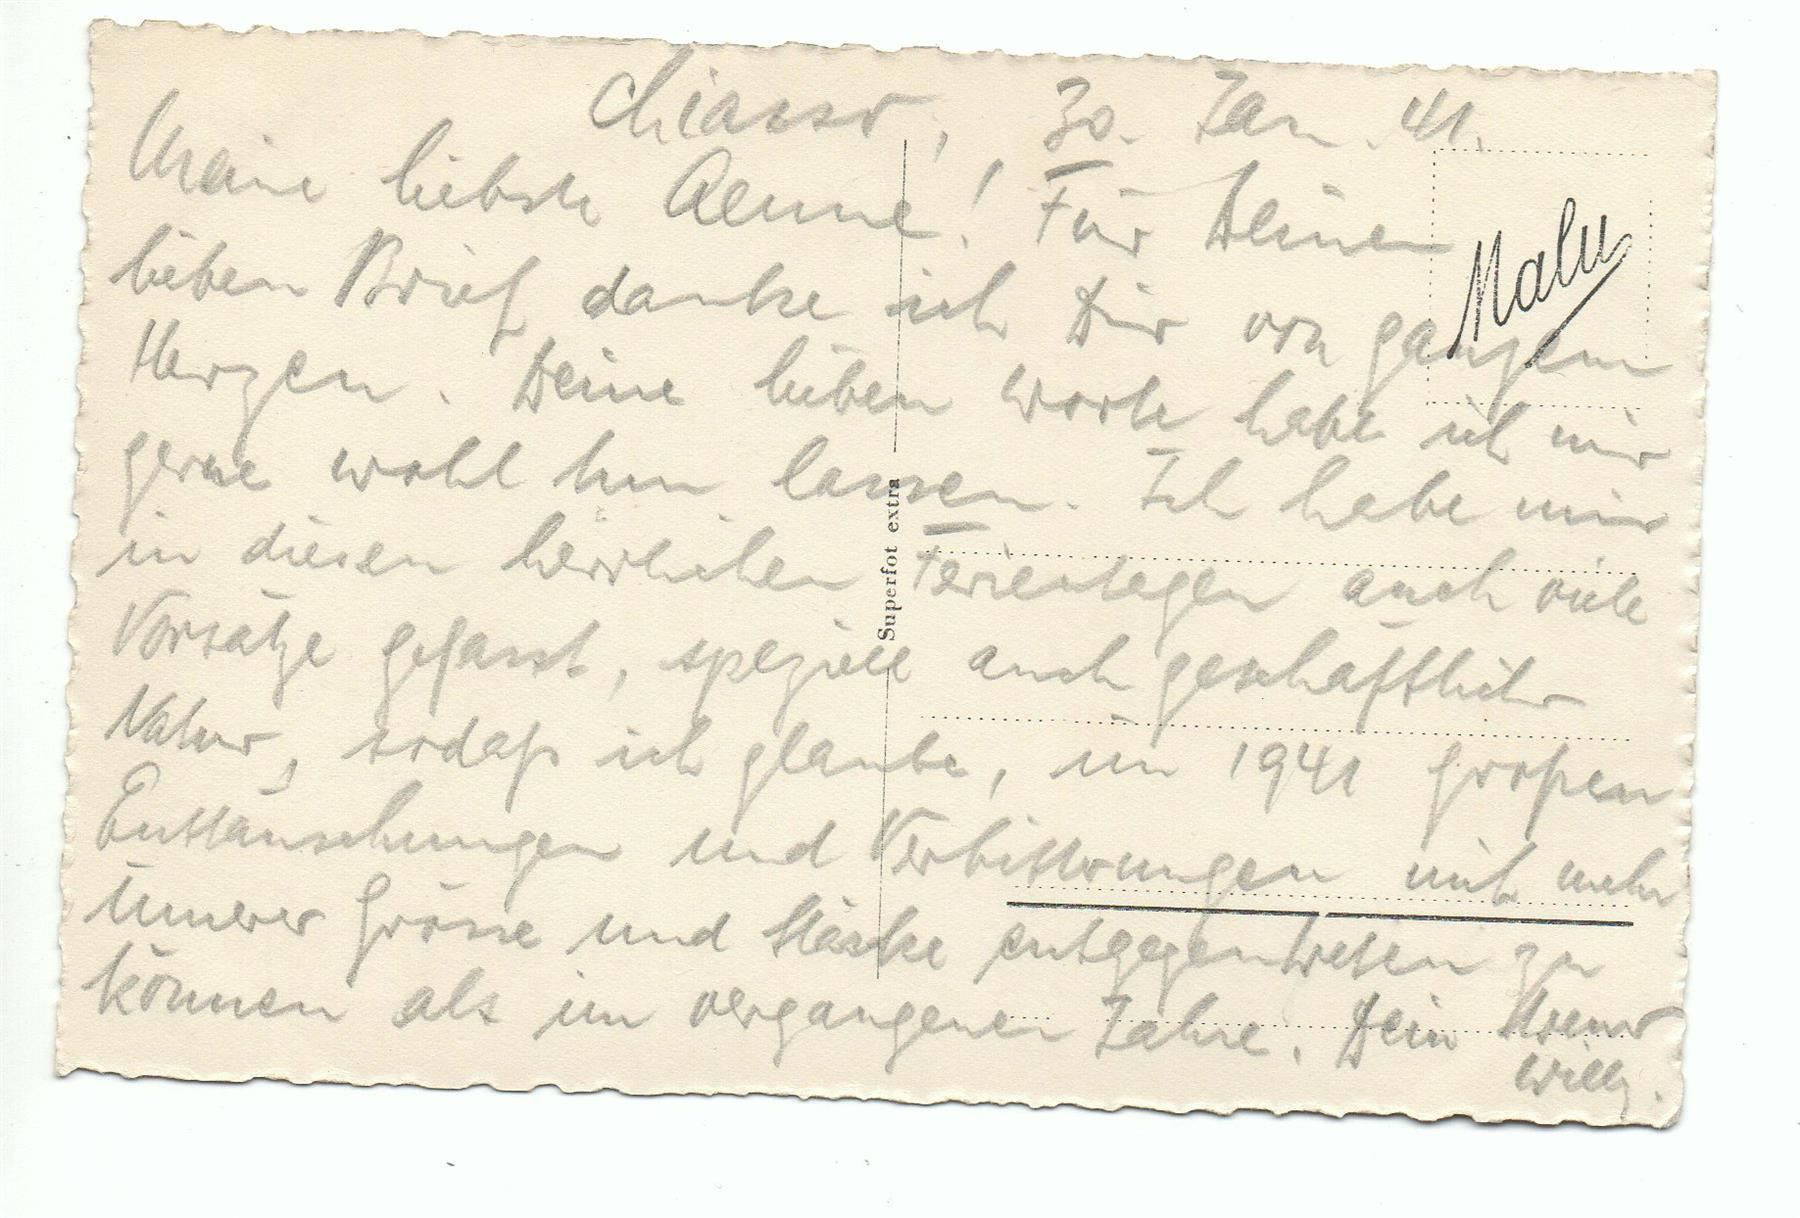 Chiasso, 30. Jan. 41.
Meine liebste Aenne! Für Deinen
lieben Brief danke ich Dir von ganzem
Herzen. Deine lieben Worte habe ich mir
gerne wohl tun lassen. Ich habe mir
in diesen herrlichen Ferientagen auch viele
Vorsätze gefasst, speziell auch geschäftlicher
Natur, sodaß ich glaube, im 1941 großen
Enttäuschungen und Verbitterungen mit mehr
innerer Grösse und Stärke entgegentreten zu
können als im vergangenen Jahre. Dein treuer
Willy.
Malu
Superfot extra